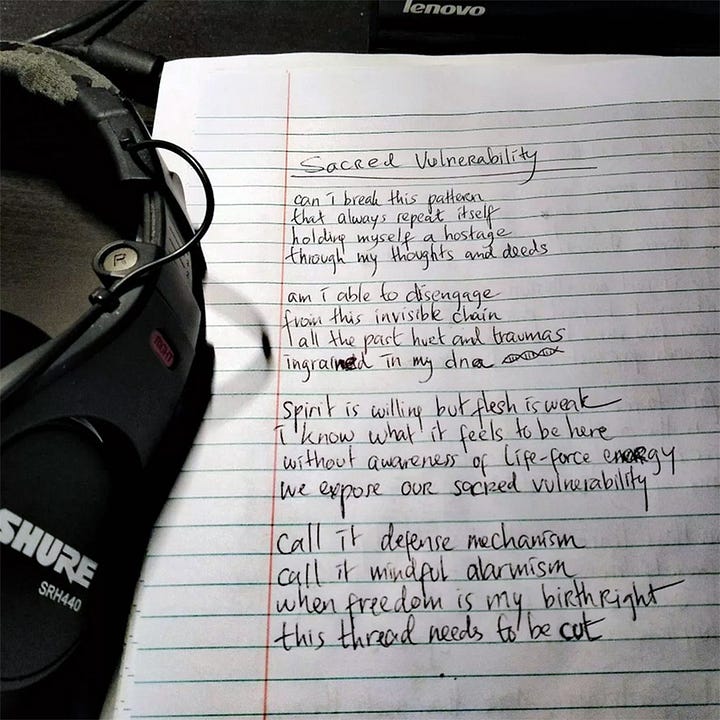 lenovo
Sacred Vulnerability
can i break this pattern
that always repeat itself
holding myself a hostage
through my thoughts and deeds
am i able to disengage
from this invisible chain
all the past hurt and traumas
ingrained in my dna
Spirit is willing but flesh is weak
i know what it feels to be here
without awareness of life-force energy
we expose our sacred vulnerability
call it defense mechanism
call it mindful alarmism
when freedom is my birthright
this thread needs to be cut
R
RIGHT
SHURE
SRH440